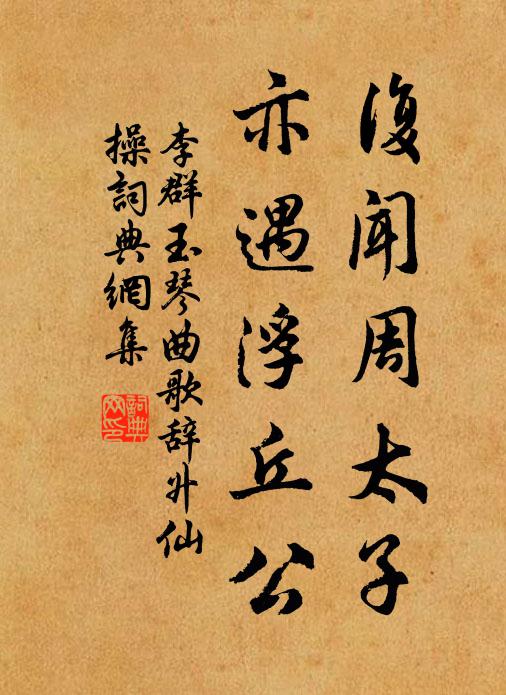 復聞周太子
亦遇浮丘公
李群玉琴曲歌辞升仙
操詞典網集
詞典网印